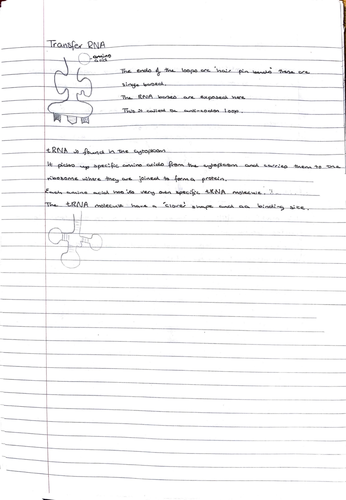 Transfer RNA
amino
acid
The ends of the loops are 'hair pin bends' these are
single based.
The RNA bases are exposed here
This is called an anti-codon loop.
tRNA is found in the cytoplasm
It picks up specific amino acids from the cytoplasm and carries them to the
ribosome where they are joined to form a protein.
Each amino acid has its very own specific tRNA molecule. ?
The tRNA molecule have a 'clove' shape and aa binding site.